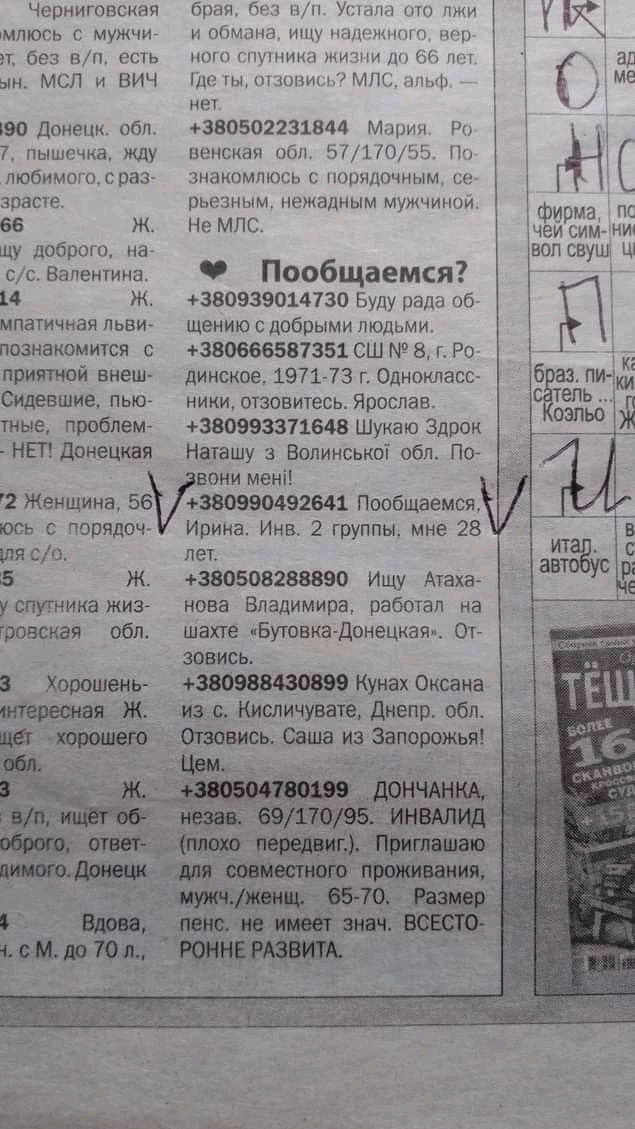 Черниговская
омлюсь с мужчи-
ет, без в/п, есть
ын. МСЛ и ВИЧ
890 Донецк. обл.
7, пышечка, жду
любимого, с раз-
зрасте.
66 Ж.
щу доброго, на-
с/с. Валентина.
14 Ж.
мпатичная льви-
познакомится с
приятной внеш-
Сидевшие, пью-
тные, проблем-
- НЕТ! Донецкая
72 Женщина, 56
юсь с порядоч-
для с/о.
35 Ж.
у спутника жиз-
тровская обл.
3 Хорошень-
интересная Ж.
щет хорошего
обл.
3 Ж.
з в/п, ищет об-
оброго, ответ-
димого. Донецк
4 Вдова,
н. с М. до 70 л.,
брая, без в/п. Устала ото лжи
и обмана, ищу надежного, вер-
ного спутника жизни до 66 лет.
Где ты, отзовись? МЛС, альф. —
нет.
+380502231844 Мария. Ро-
венская обл. 57/170/55. По-
знакомлюсь с порядочным, се-
рьезным, нежадным мужчиной.
Не МЛС.
❤ Пообщаемся?
+380939014730 Буду рада об-
щению с добрыми людьми.
+380666587351 СШ № 8, г. Ро-
динское, 1971-73 г. Однокласс-
ники, отзовитесь. Ярослав.
+380993371648 Шукаю Здрок
Наташу з Волинської обл. По-
звони мені!
+380990492641 Пообщаемся,
Ирина. Инв. 2 группы, мне 28
лет.
+380508288890 Ищу Атаха-
нова Владимира, работал на
шахте «Бутовка-Донецкая». От-
зовись.
+380988430899 Кунах Оксана
из с. Кисличувате, Днепр. обл.
Отзовись. Саша из Запорожья!
Цем.
+380504780199 ДОНЧАНКА,
незав. 69/170/95. ИНВАЛИД
(плохо передвиг.). Приглашаю
для совместного проживания,
мужч./женщ. 65-70. Размер
пенс. не имеет знач. ВСЕСТО-
РОННЕ РАЗВИТА.
О
ад
ме
Н
фирма,
чей сим-
вол свуш
по
ние
ц
П
браз. пи-
сатель ...
Коэльо
ка
ки
го
Ж
И
итал.
автобус
в
с
ра
че
ТЁЩ
БОЛЕЕ
16
СКАНВО
КРОСС
СУД